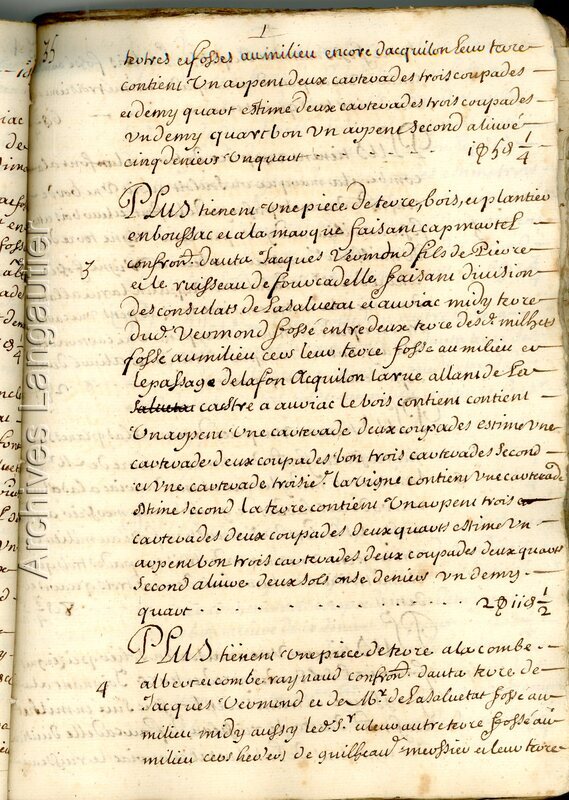 35
1
teutres et fosses au milieu encore dacquilon leur terre
contient Un arpent deux carterades trois coupades
et demy quart estime deux carterades trois coupades
Un demy quart bon un arpent second alivré
cinq deniers Un quart 5 1/4
PLUS tienent Une piece de terre, bois, et plantier
en boussac et a la marque faisant capmartel
3 confron.t dauta Jacques Vermond fils de Pierre
et le ruisseau de foucadelle faisant division
des consulats de Lasaluetat et auriac midy terre
dud. Vermond fosse entre deux terre des d. milhets
fosse au milieu cers leur terre fosse au milieu et
le passage de lafon Acquilon la rue allant de La
Salvetat caestre a auriac le bois contient contient
Un arpent Une carterade deux coupades estime Une
carterade deux coupades bon trois carterades Second
et Une carterade troisie. la vigne contient Une carterade
estime second la terre contient Un arpent trois
carterades deux coupades deux quarts estime Un
arpent bon trois carterades deux coupades deux quarts
Second alivre deux sols onse deniers Un demy
quart 11 1/2
PLUS tienent Une piece de terre a la combe
albert et combe raynaud confron.t dauta terre de
4 Jacques Vermond et de Mr. de Lasaluetat fossé au
milieu midy aussy led. Sr. et leur autre terre fossé au
milieu cers heters de guilheau. meossier et leur terre
Archives Langautier